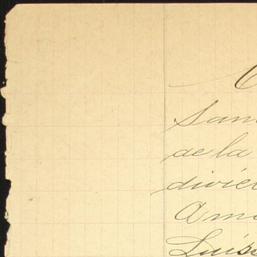 San
de la
divié
Ama
Luis